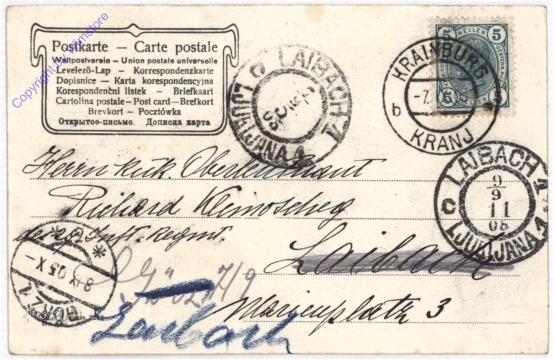 Copyright by stmstore
Postkarte – Carte postale
Weltpostverein – Union postale universelle
Levelező-Lap – Korrespondenzkarte
Dopisnice – Karta korespondencyjna
Korespondenční listek – Briefkaart
Cartolina postale – Post card – Brefkort
Brevkort – Pocztówka
Открытое-письмо. Дописна карта
5 HELLER 5
5
KRAINBURG
b
KRANJ
LAIBACH 1
c
LJUBLJANA 1
LAIBACH 1
c
9
9
11
05
LJUBLJANA 1
Herrn k.u.k. Oberleutnant
Richard
Inft. Regmt.
Laibach
Marienplatz 3
Laibach
8 IX 05 X